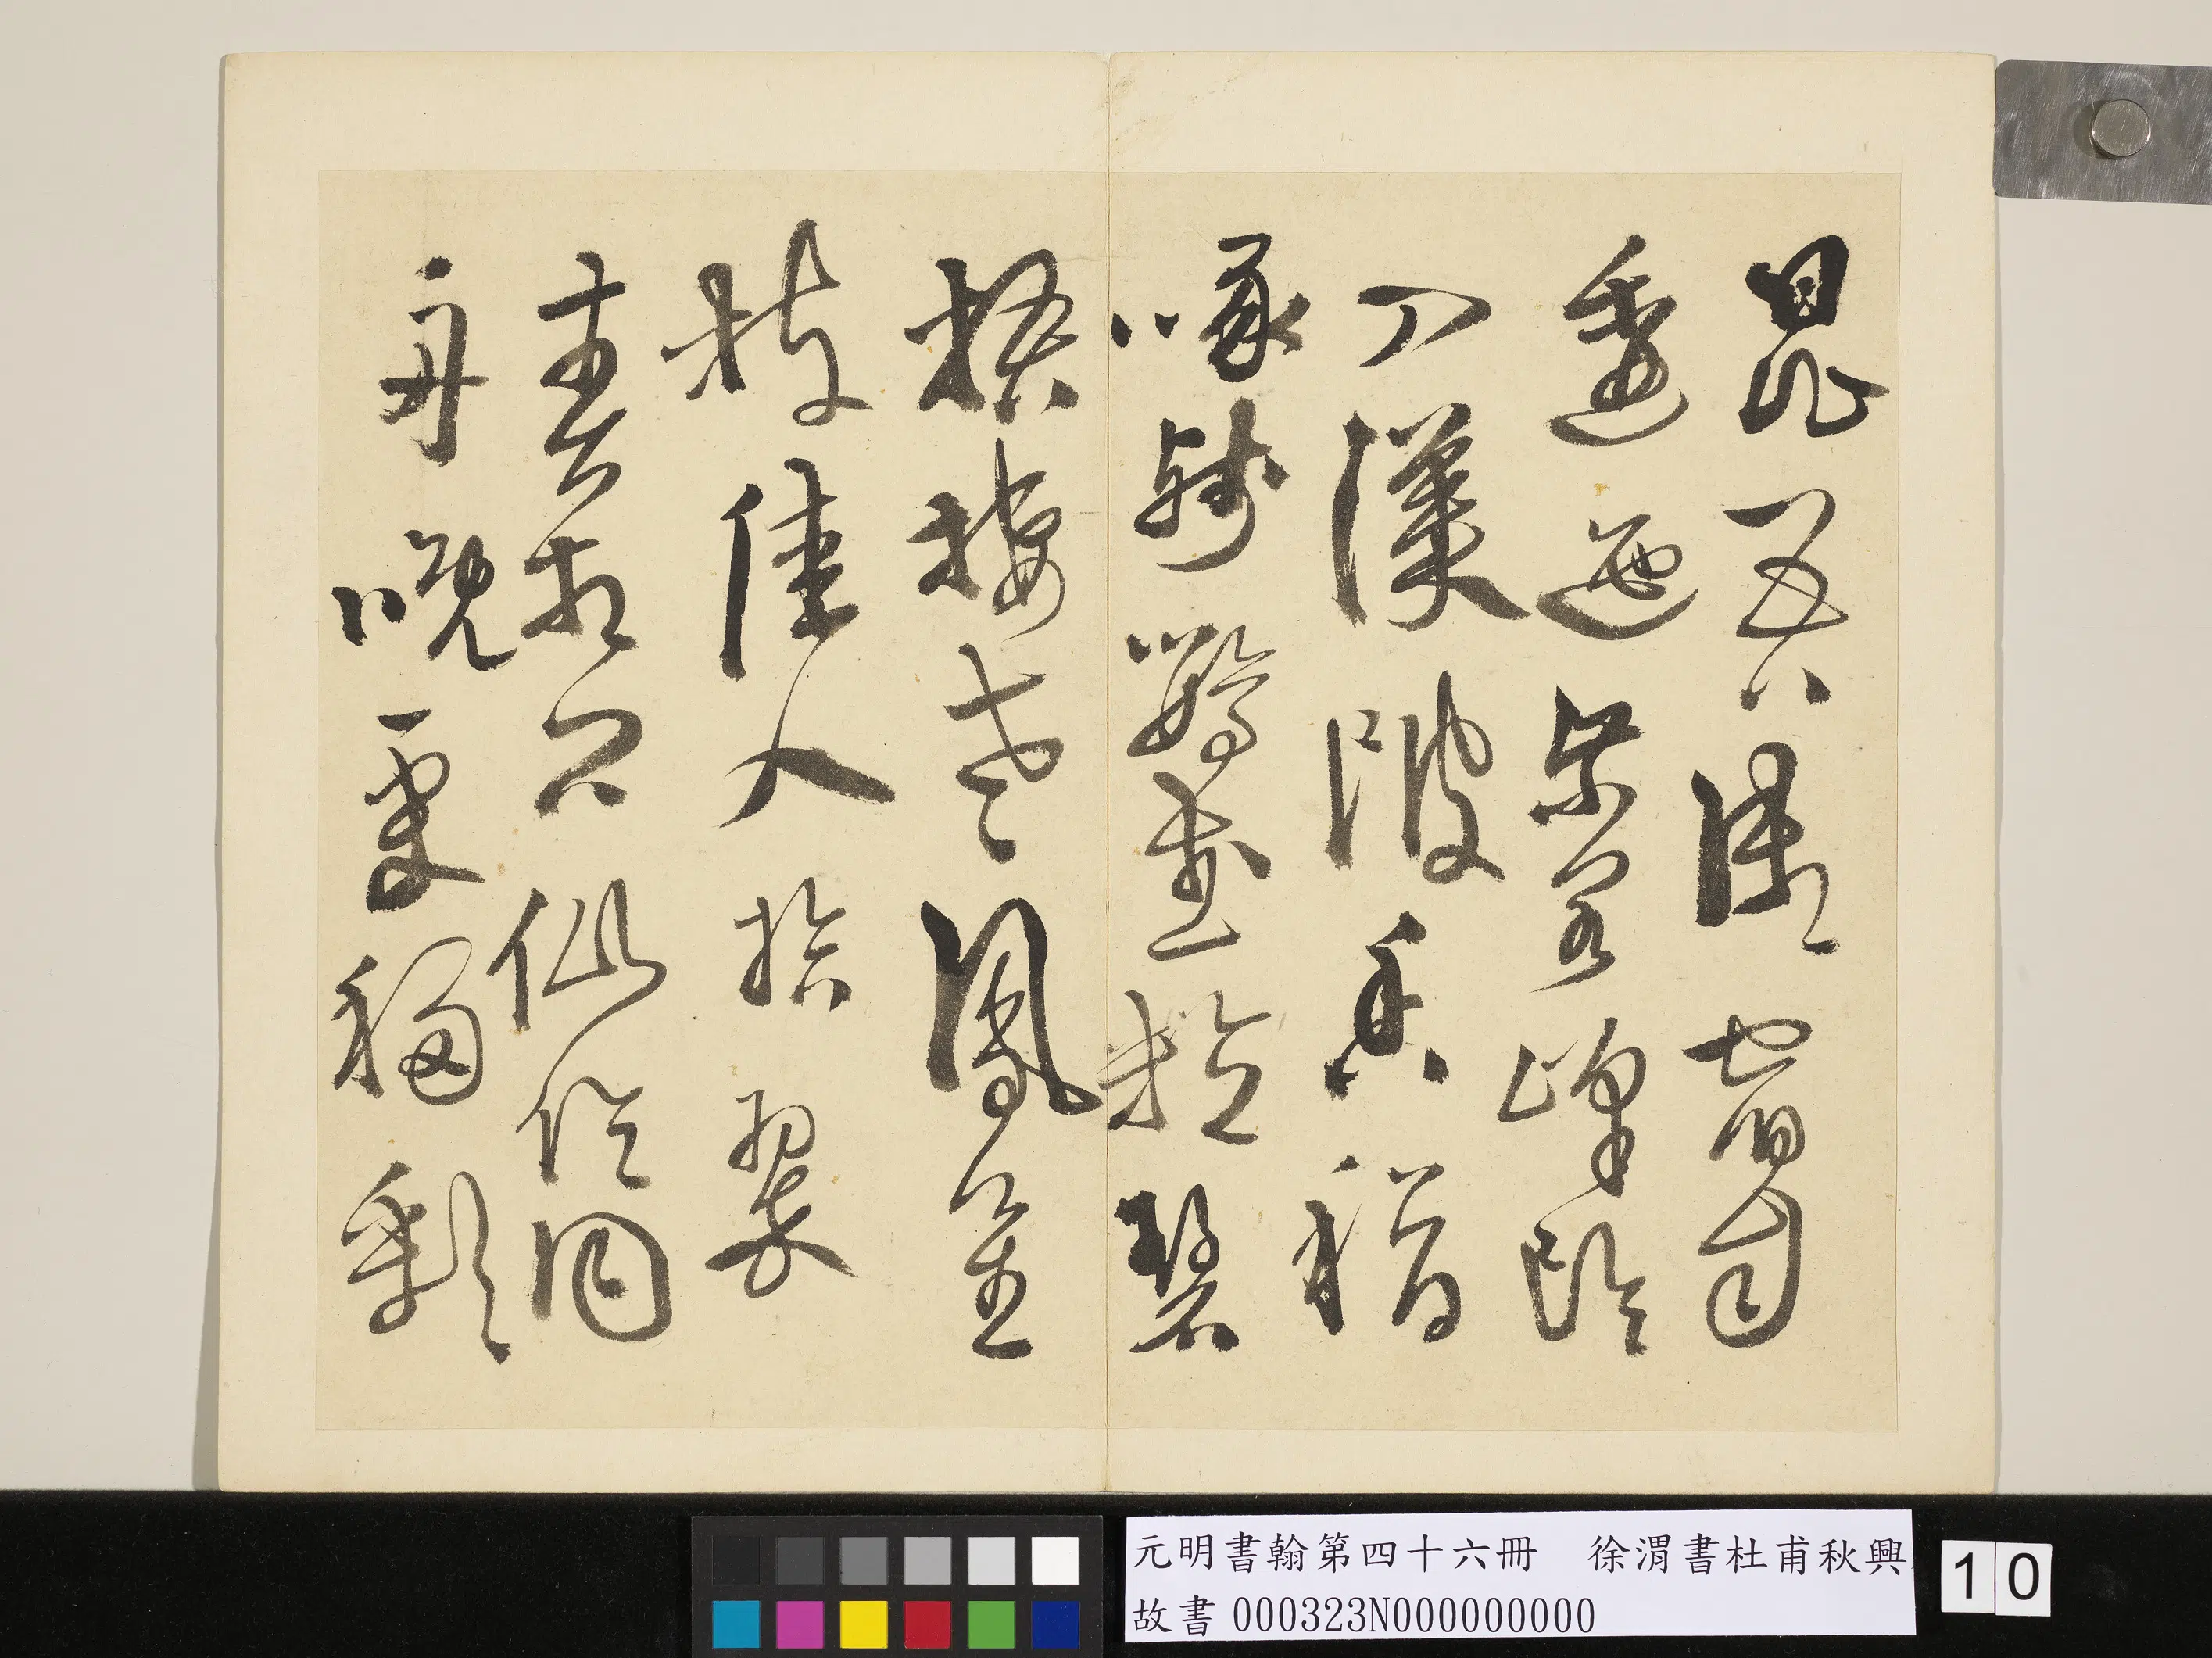 昆吾御宿自
逶迤紫閣峰陰
入渼陂香稻
啄殘鸚鵡粒碧
梧棲老鳳凰
枝佳人拾翠
春相問仙侶同
舟晚更移彩
元明書翰第四十六冊　徐渭書杜甫秋興
故書 000323N000000000
10